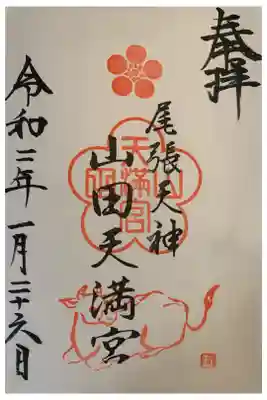 奉拝
尾張天神
山田天満宮
山田天満宮
令和二年一月二十六日